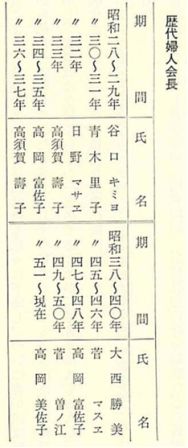 歴代婦人会長
期間 氏名
昭和二八〜二九年 谷口キミヨ
〃三〇〜三一年 青木里子
〃三二年 日野マサヱ
〃三三年 高須賀壽子
〃三四〜三五年 高岡富佐子
〃三六〜三七年 高須賀壽子
期間 氏名
昭和三八〜四〇年 大西勝美
〃四五〜四六年 菅マスヱ
〃四七〜四八年 高岡富佐子
〃四九〜五〇年 菅曽ノ江
〃五一〜現在 高岡美佐子